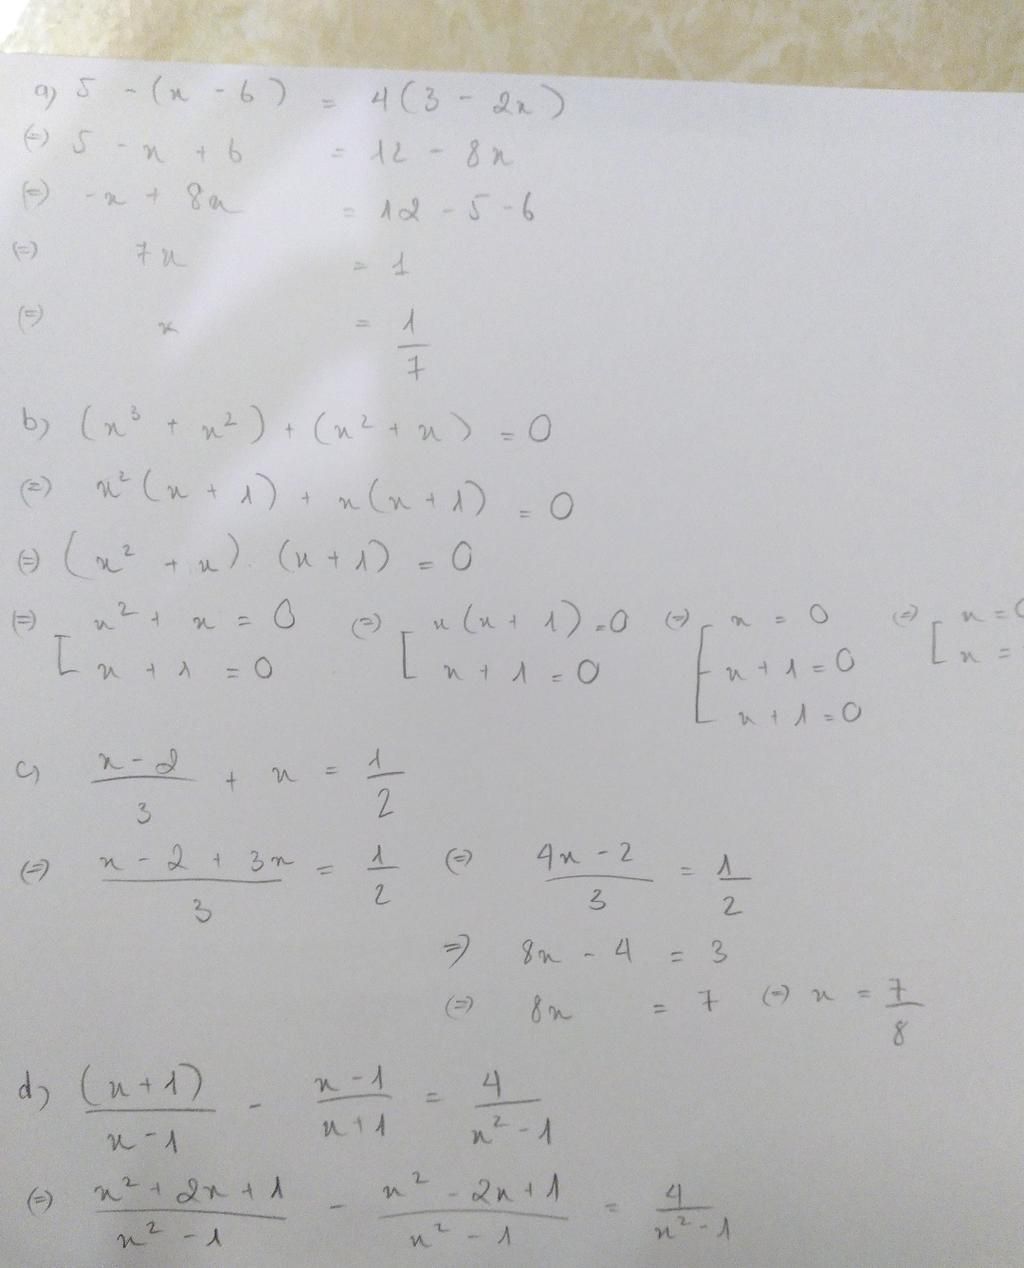 a) 5 - (x - 6) = 4(3 - 2x)
(=) 5 - x + 6 = 12 - 8x
(=) -x + 8x = 12 - 5 - 6
(=) 7x = 1
(=) x = 1/7
b) (x³ + x²) + (x² + x) = 0
(=) x²(x + 1) + x(x + 1) = 0
(=) (x² + x). (x + 1) = 0
(=) [ x² + x = 0 (=) [ x(x + 1) = 0 (=) [ x = 0 (=) [ x = 0
x + 1 = 0 x + 1 = 0 x + 1 = 0 x =
x + 1 = 0
c) (x - 2)/3 + x = 1/2
(=) (x - 2 + 3x)/3 = 1/2 (=) (4x - 2)/3 = 1/2
=> 8x - 4 = 3
(=) 8x = 7 (=) x = 7/8
d) (x + 1)/(x - 1) - (x - 1)/(x + 1) = 4/(x² - 1)
(=) (x² + 2x + 1)/(x² - 1) - (x² - 2x + 1)/(x² - 1) = 4/(x² - 1)